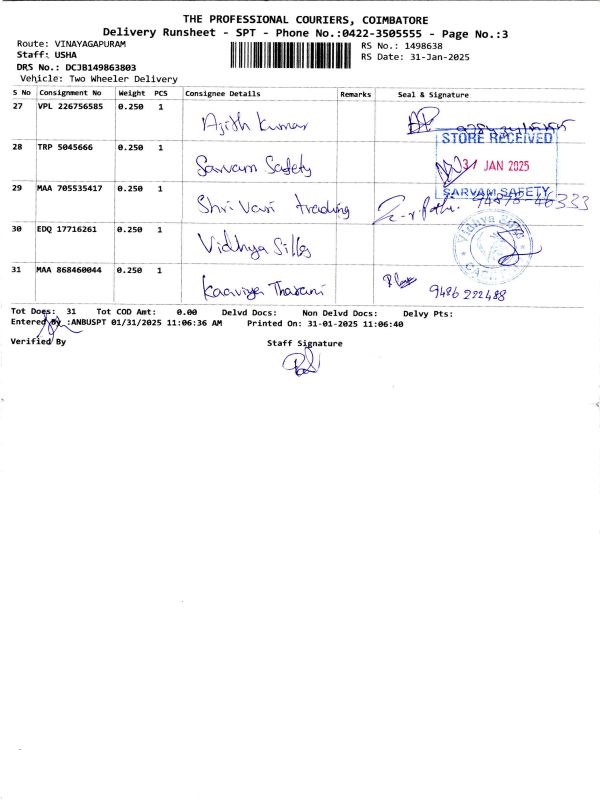 THE PROFESSIONAL COURIERS, COIMBATORE
Delivery Runsheet - SPT - Phone No.:0422-3505555 - Page No.:3
Route: VINAYAGAPURAM
RS No.: 1498638
Staff: USHA
RS Date: 31-Jan-2025
DRS No.: DCJB149863803
Vehicle: Two Wheeler Delivery
S No Consignment No Weight PCS Consignee Details Remarks Seal & Signature
27 VPL 226756585 0.250 1 Ajith Kumar
STORE RECEIVED
28 TRP 5045666 0.250 1 Sarvam Safety
31 JAN 2025
SARVAM SAFETY
29 MAA 705535417 0.250 1 Shri Vari trading
30 EDQ 17716261 0.250 1 Vidhya Sills
31 MAA 868460044 0.250 1 Kaaviya Tharani
9486 222488
Tot Does: 31 Tot COD Amt: 0.00 Delvd Docs: Non Delvd Docs: Delvy Pts:
Entered By :ANBUSPT 01/31/2025 11:06:36 AM Printed On: 31-01-2025 11:06:40
Verified By Staff Signature